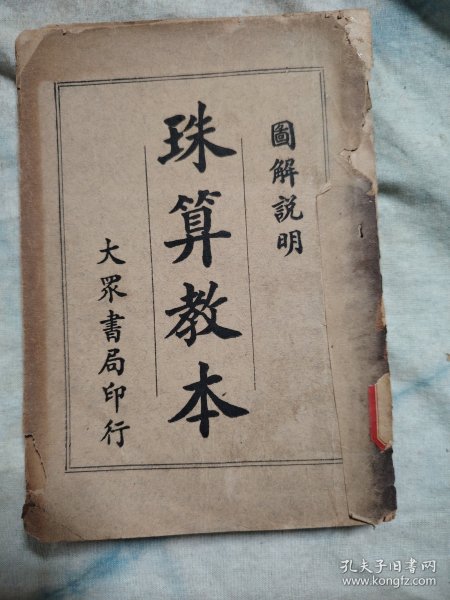 圖解説明
珠算教本
大眾書局印行
孔夫子旧书网
www.kongfz.com